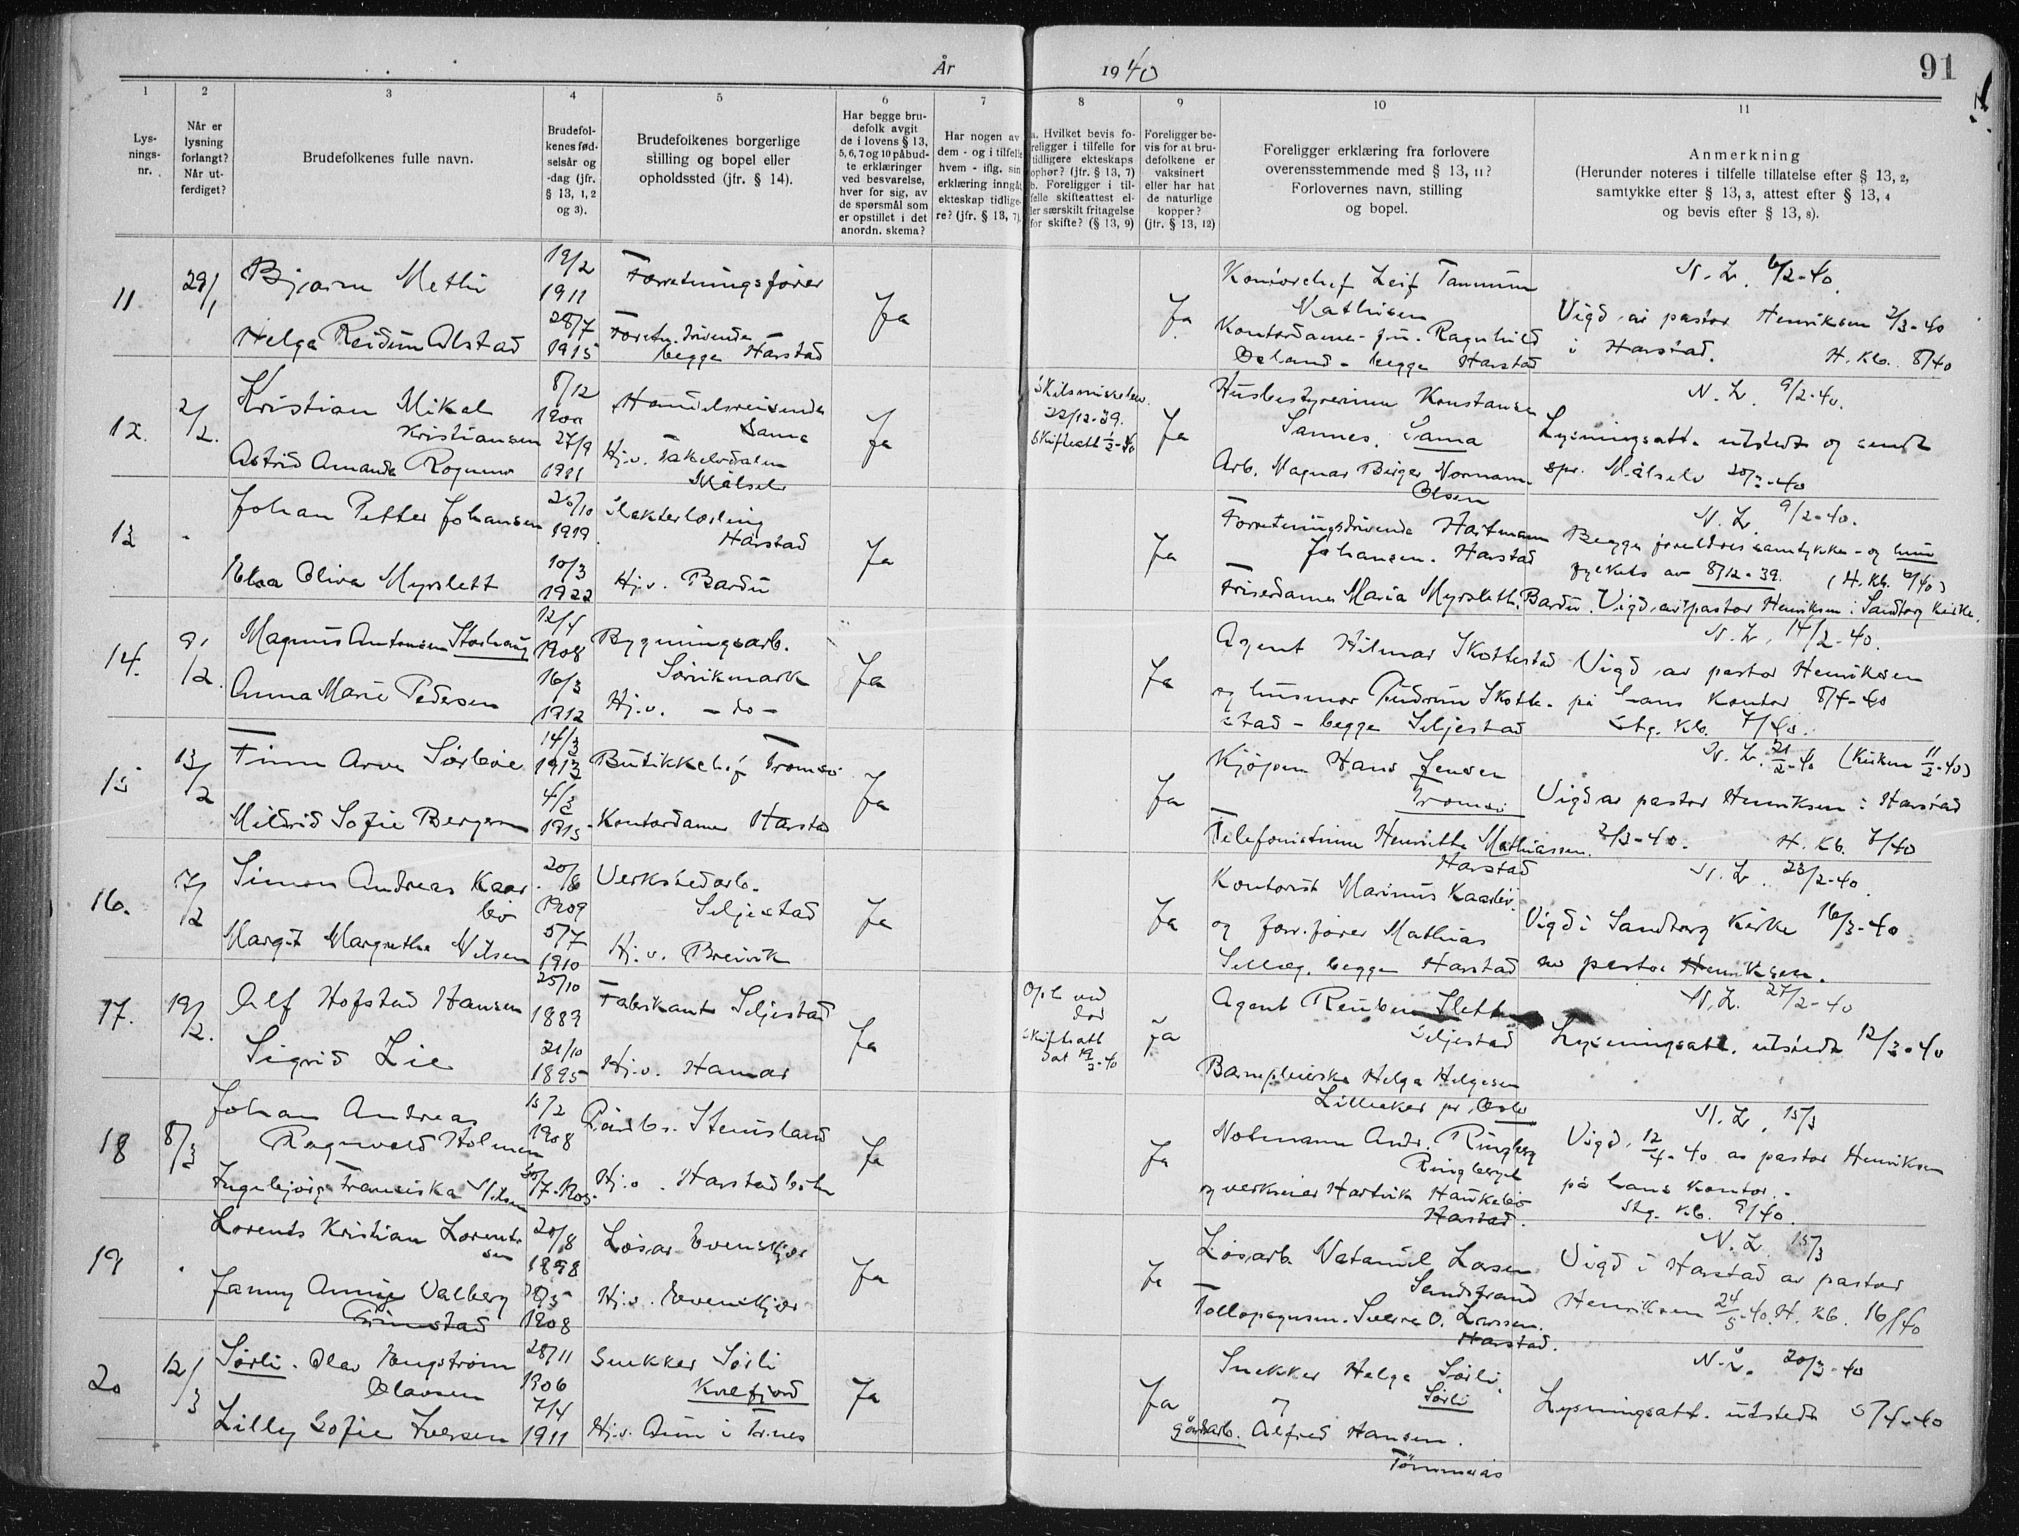 År 1940
91
1 2 3 4 5 6 7 8 9 10 11
Lys-
nings-
nr.
Når er
lysning
forlangt?
Når ut-
ferdiget?
Brudefolkenes fulle navn.
Brudefol-
kenes fød-
selsår og
-dag (jfr.
§ 13, 1, 2
og 3).
Brudefolkenes borgerlige
stilling og bopel eller
opholdssted (jfr. § 14).
Har begge bru-
defolk avgit
de i lovens § 13,
5, 6, 7 og 10 påbud-
te erklæringer
ved besvarelse,
hver for sig, av
de spørsmål som
er opstillet i det
anordn. skema?
Har nogen av
dem - og i tilfelle
hvem - iflg. sin
erklæring inngått
ekteskap tidlige-
re? (jfr. § 13, 7).
a. Hvilket bevis fo-
religger i tilfelle for
tidligere ekteskaps
ophør? (jfr. § 13, 7)
b. Foreligger i til-
felle skifteattest el-
ler særskilt fritagelse
for skifte? (§ 13, 9)
Foreligger be-
vis for at bru-
defolkene er
vaksinert
eller har hat
de naturlige
kopper?
(jfr. § 13, 12)
Foreligger erklæring fra forlovere
overensstemmende med § 13, 11?
Forlovernes navn, stilling
og bopel.
Anmerkning
(Herunder noteres i tilfelle tillatelse efter § 13, 2,
samtykke efter § 13, 3, attest efter § 13, 4
og bevis efter § 13, 8).
11. 29/1
Bjarne Methi
19/2
1911
Forretningsfører
Helga Reidun Alstad
28/7
1915
Forretn. drivende
begge Harstad
Ja
Ja
Kontorchef Leif Tammum
Mathisen
Kontordame frk. Ragnhild
begge Harstad
N. L. 6/2-40.
Vigd av pastor Henriksen 2/3-40
i Harstad. H. Kb. 8/40
12. 2/2.
Kristian Mikal
Kristiansen
8/12
1900
Handelsreisende
Sama
Astrid Amanda Rognmo
27/9
1911
Hj.v. Takelvdalen
Målselv
Ja
22/12-39.
Ja
Husbestyrerinne Konstanse
Sannes. Sama
Arb. Magnar Birger Normann
Olsen
N. L. 9/2-40.
Lysningsatt. utstedt og sendt
spr. Målselv
13 -
Johan Petter Johansen
1919.
Slakterlærling
Harstad
Elsa Oliva Myrslett
10/3
1922
Hj.v. Bardu
Ja
Ja
Forretningsdrivende Hartmann
Johansen. Harstad
Friserdame Maria Myrslett. Bardu.
N. L. 9/2-40.
Begge foreldres samtykke - og
fylkets av 8/12-39. (H. Kb. 6/40)
Vigd av pastor Henriksen i Sandtorg kirke.
14. 9/2.
Magnus Antonsen Storhaug
12/4
1908
Bygningsarb.
Sørvikmark
Anna Marie Pedersen
16/3
1912
Hj.v. - do -
Ja
Ja
Agent Hilmar Skottestad
og husmor Gudrun Skotte-
stad - begge Seljestad
N. L. 14/2-40.
Vigd av pastor Henriksen
på hans kontor 8/4-40
Stg. Kb. 7/40.
15 13/2
Finn Arve Sørbøe
14/3
1913
Butikkchef Tromsø
Mildrid Sofie Bergersen
4/3
1915
Kontordame Harstad
Ja
Ja
Kjøpm Hans Jensen
Tromsø
Telefonistinne Henriette Mathiassen.
Harstad
N. L. 21/2-40
Vigd av pastor Henriksen i Harstad
2/3-40. H. Kb. 7/40
16. 7/2
Simon Andreas Kaar
bø
20/8
1909
Verkstedarb.
Seljestad
Margit Margrethe Nilsen
5/7
1910
Hj.v. Breivik
Ja
Ja
Kontorist Marinus Kaarbø.
og forr.fører Mathias
begge Harstad
N. L. 23/2-40.
Vigd i Sandtorg kirke 16/3-40
av pastor Henriksen.
17. 19/2.
Alf Hofstad Hansen
25/10
1889
Fabrikant Seljestad
Sigrid Lie
21/10
1895
Hj.v. Hamar
Ja
Opl. ved
død
Skifteatt
dat 19/2-40
Ja
Agent Reuben Slette
Seljestad
Barnepleierske Helga Helgesen
Lilleaker pr. Oslo
N. L. 27/2-40
Lysningsatt. utstedt 12/3-40
18 8/3
Johan Andreas
Ragnvald Holmen
15/2
1908
Stensland
Ingebjørg Franciska Nilsen
Hj.v. Harstadbotn
Ja
Ja
Notmann Andr. Ringberg
Ringberget
og verkseier Hartvik Haukebø
Harstad.
N. L. 15/3
Vigd. 12/4-40 av pastor Henriksen
på hans kontor. -
Stg. Kb. 9/40.
19 .
Lorents Kristian Lorent-
sen
20/8
1898
Løsar. Evenskjær
Fanny Anny Valberg
Grimstad
1908
Hj.v. Evenskjær
Ja
Ja
Løsarb Natanael Larsen
Sandstrand
Tollopsynsm. Sverre O. Larssen.
Harstad.
N. L. 15/3
Vigd i Harstad av pastor
Henriksen 24/5-40. H. Kb. 16/40
20 12/3
Sørli. Olav Engstrøm
Olavsen
28/11
1906
Snekker Sørli
Kvefjord
Lilly Sofie Iversen
7/4
1911
Ja
Ja
Snekker Helge Sørli.
Sørli
og
gårdsarb. Alfred Hansen.
Tømmerås
N. L. 20/3-40
Lysningsatt. utstedt 5/4-40